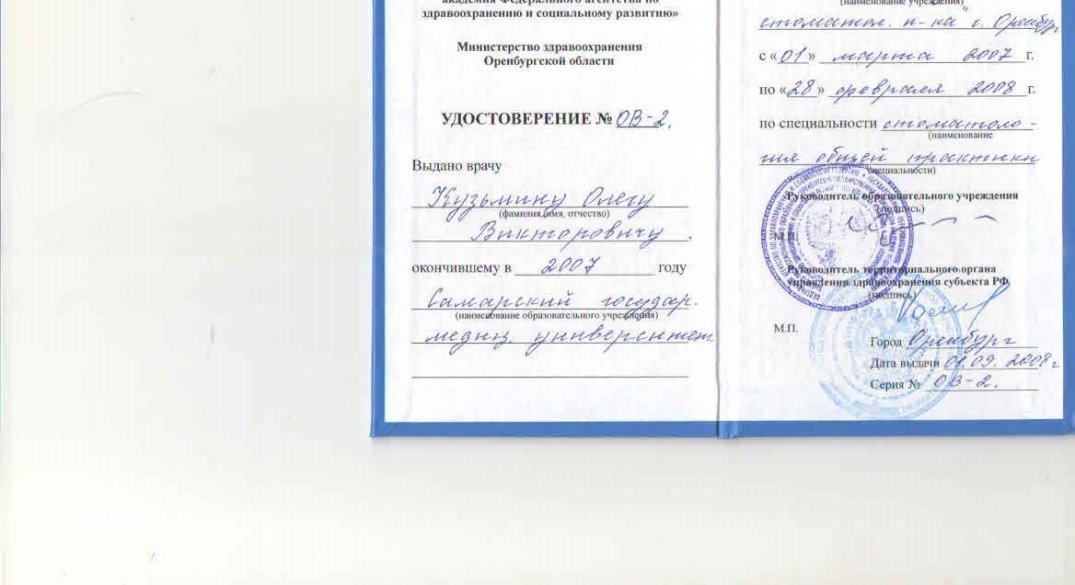 академия Федерального агентства по
здравоохранению и социальному развитию»
Министерство здравоохранения
Оренбургской области
УДОСТОВЕРЕНИЕ № ОВ-2.
Выдано врачу
Кузьмину Олегу
(фамилия, имя, отчество)
Викторовичу
окончившему в 2007 году
Самарский государ.
(наименование образовательного учреждения)
медиц. университет
(наименование учреждения)
стоматол. п-ка г. Оренбург
с «01» марта 2007 г.
по «28» февраля 2008 г.
по специальности стоматоло-
(наименование
гия общей практики
специальности)
Руководитель образовательного учреждения
(подпись)
М.П.
Руководитель территориального органа
управления здравоохранения субъекта РФ
(подпись)
М.П.
Город Оренбург
Дата выдачи 01.09.2008г
Серия № ОВ-2.